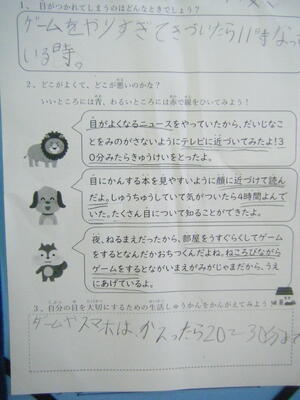 1、目がつかれてしまうのはどんなときでしょう?
ゲームをやりすぎてきづいたら11時なって
いる時。
2、どこがよくて、どこが悪いのかな?
いいところには青、わるいところには赤で線をひいてみよう!
目がよくなるニュースをやっていたから、だいじなこ
とをみのがさないようにテレビに近づいてみたよ!3
0分みたらきゅうけいをとったよ。
目にかんする本を見やすいように顔に近づけて読ん
だよ。しゅうちゅうしていて気がついたら4時間よんで
いた。たくさん目について知ることができたよ。
夜、ねるまえだったから、部屋をうすぐらくしてゲーム
をするとなんだかおちつくんだよね。ねころびながら
ゲームをするとながいまえがみがじゃまだから、うえ
にあげているよ。
3、自分の目を大切にするための生活しゅうかんをかんがえてみよう
ゲームやスマホは、かえったら20〜30分まで